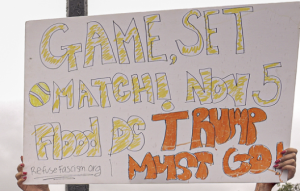 GAME, SET
MATCH! Nov 5
Flood DC TRUMP
MUST GO!
RefuseFascism.org